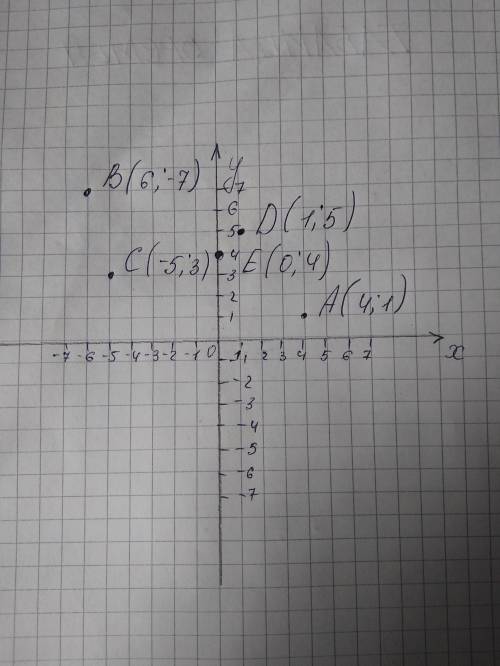 B(6;-7) y
7
6
D(1;5)
5
C(-5;3) 4 E(0;4)
3
2
A(4;1)
1
-7 -6 -5 -4 -3 -2 -1 0 1 2 3 4 5 6 7 x
-2
-3
-4
-5
-6
-7